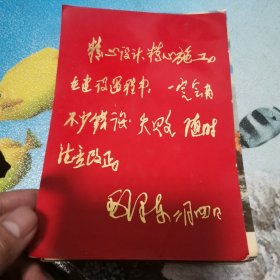 精心设计，精心施工。
在建设过程中，一定会有
不少错误、失败，随时
注意改正。
毛泽东 二月四日